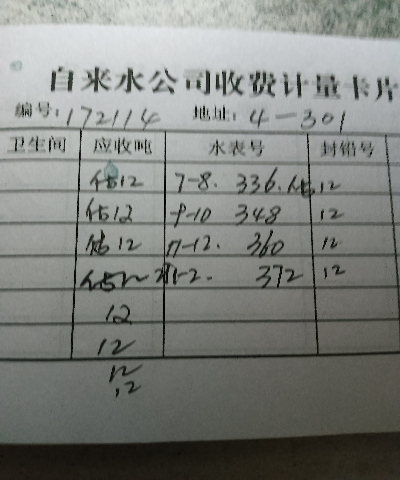 自来水公司收费计量卡片
编号:172114 地址:4-301
卫生间 应收吨 水表号 封铅号
估12 7-8. 336.估12
估12 9-10 348 12
估12 11-12. 360 12
估12 1-2. 372 12
12
12
12
12